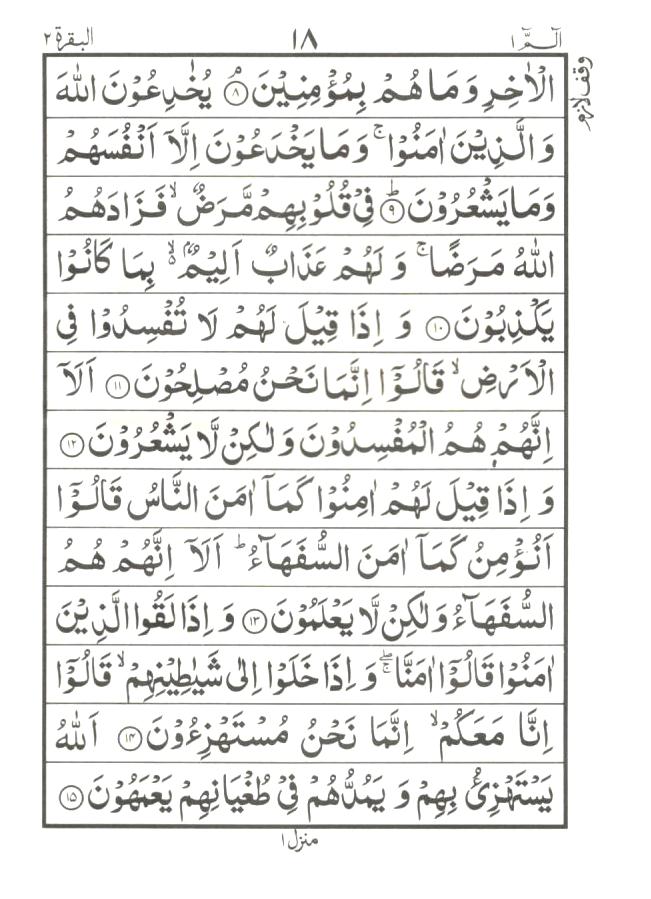 الٓمّٓ ١ ١٨ البقرة ٢
وقف لازم
الْاٰخِرِ وَمَا هُمْ بِمُؤْمِنِیْنَ ۘ﴿۸﴾ یُخٰدِعُوْنَ اللّٰهَ
وَالَّذِیْنَ اٰمَنُوْا ۚ وَمَا یَخْدَعُوْنَ اِلَّاۤ اَنْفُسَهُمْ
وَمَا یَشْعُرُوْنَ ؕ﴿۹﴾ فِیْ قُلُوْبِهِمْ مَّرَضٌ ۙ فَزَادَهُمُ
اللّٰهُ مَرَضًا ۚ وَلَهُمْ عَذَابٌ اَلِیْمٌۢ ۙ۬ بِمَا كَانُوْا
یَكْذِبُوْنَ ﴿۱۰﴾ وَاِذَا قِیْلَ لَهُمْ لَا تُفْسِدُوْا فِی
الْاَرْضِ ۙ قَالُوْۤا اِنَّمَا نَحْنُ مُصْلِحُوْنَ ﴿۱۱﴾ اَلَاۤ
اِنَّهُمْ هُمُ الْمُفْسِدُوْنَ وَلٰكِنْ لَّا یَشْعُرُوْنَ ﴿۱۲﴾
وَاِذَا قِیْلَ لَهُمْ اٰمِنُوْا كَمَاۤ اٰمَنَ النَّاسُ قَالُوْۤا
اَنُؤْمِنُ كَمَاۤ اٰمَنَ السُّفَهَآءُ ؕ اَلَاۤ اِنَّهُمْ هُمُ
السُّفَهَآءُ وَلٰكِنْ لَّا یَعْلَمُوْنَ ﴿۱۳﴾ وَاِذَا لَقُوا الَّذِیْنَ
اٰمَنُوْا قَالُوْۤا اٰمَنَّا ۖۚ وَاِذَا خَلَوْا اِلٰی شَیٰطِیْنِهِمْ ۙ قَالُوْۤا
اِنَّا مَعَكُمْ ۙ اِنَّمَا نَحْنُ مُسْتَهْزِءُوْنَ ﴿۱۴﴾ اَللّٰهُ
یَسْتَهْزِئُ بِهِمْ وَیَمُدُّهُمْ فِیْ طُغْیَانِهِمْ یَعْمَهُوْنَ ﴿۱۵﴾
منزل ١